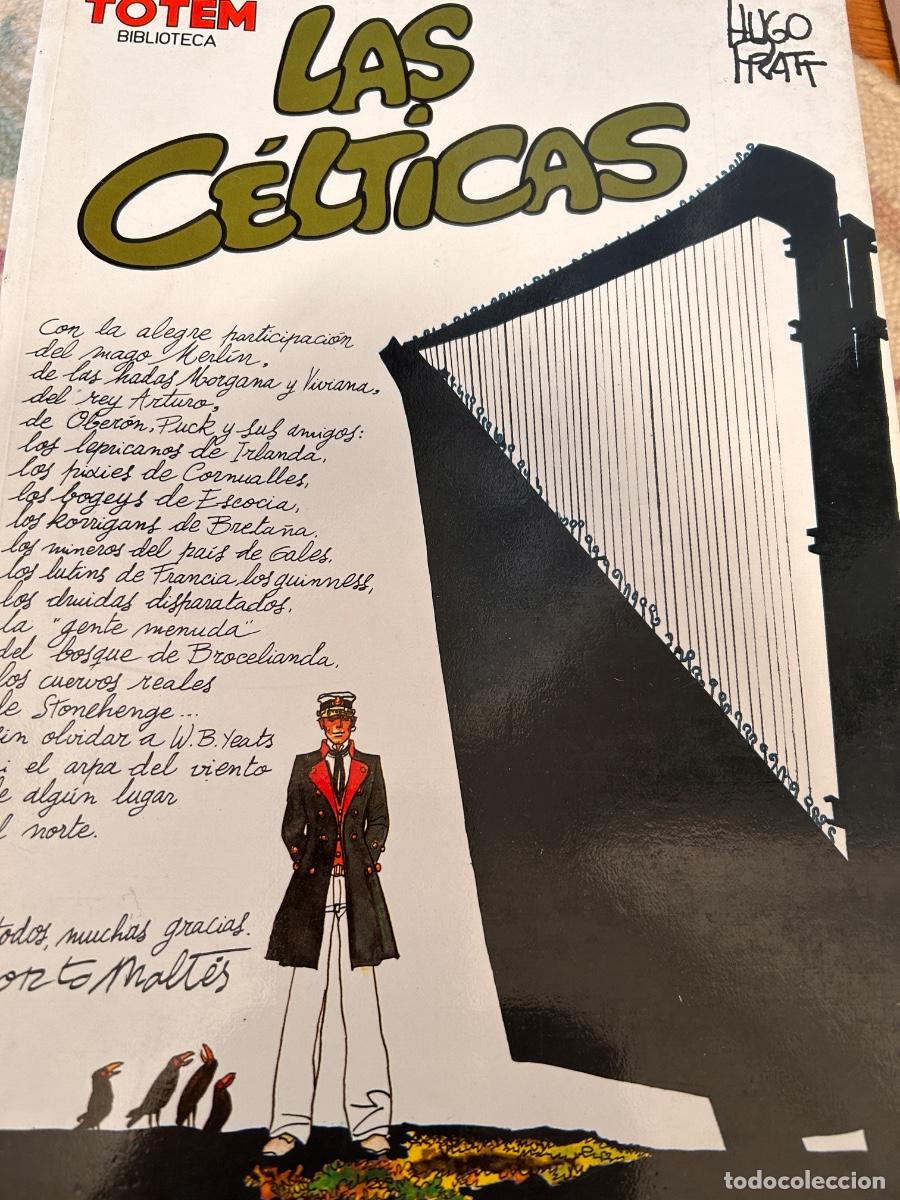 TOTEM
BIBLIOTECA
HUGO
PRATT
LAS
CÉLTICAS
Con la alegre participación
del mago Merlín,
de las hadas Morgana y Viviana,
del rey Arturo,
de Oberón, Puck y sus amigos:
los lepricanos de Irlanda,
los pixies de Cornualles,
los bogeys de Escocia,
los korrigans de Bretaña,
los mineros del país de Gales,
los lutins de Francia, los guinness,
los druidas disparatados,
la "gente menuda"
del bosque de Brocelianda,
los cuervos reales
de Stonehenge...
sin olvidar a W.B. Yeats
ni el arpa del viento
de algún lugar
del norte.
todos, muchas gracias.
Corto Maltés
todocoleccion